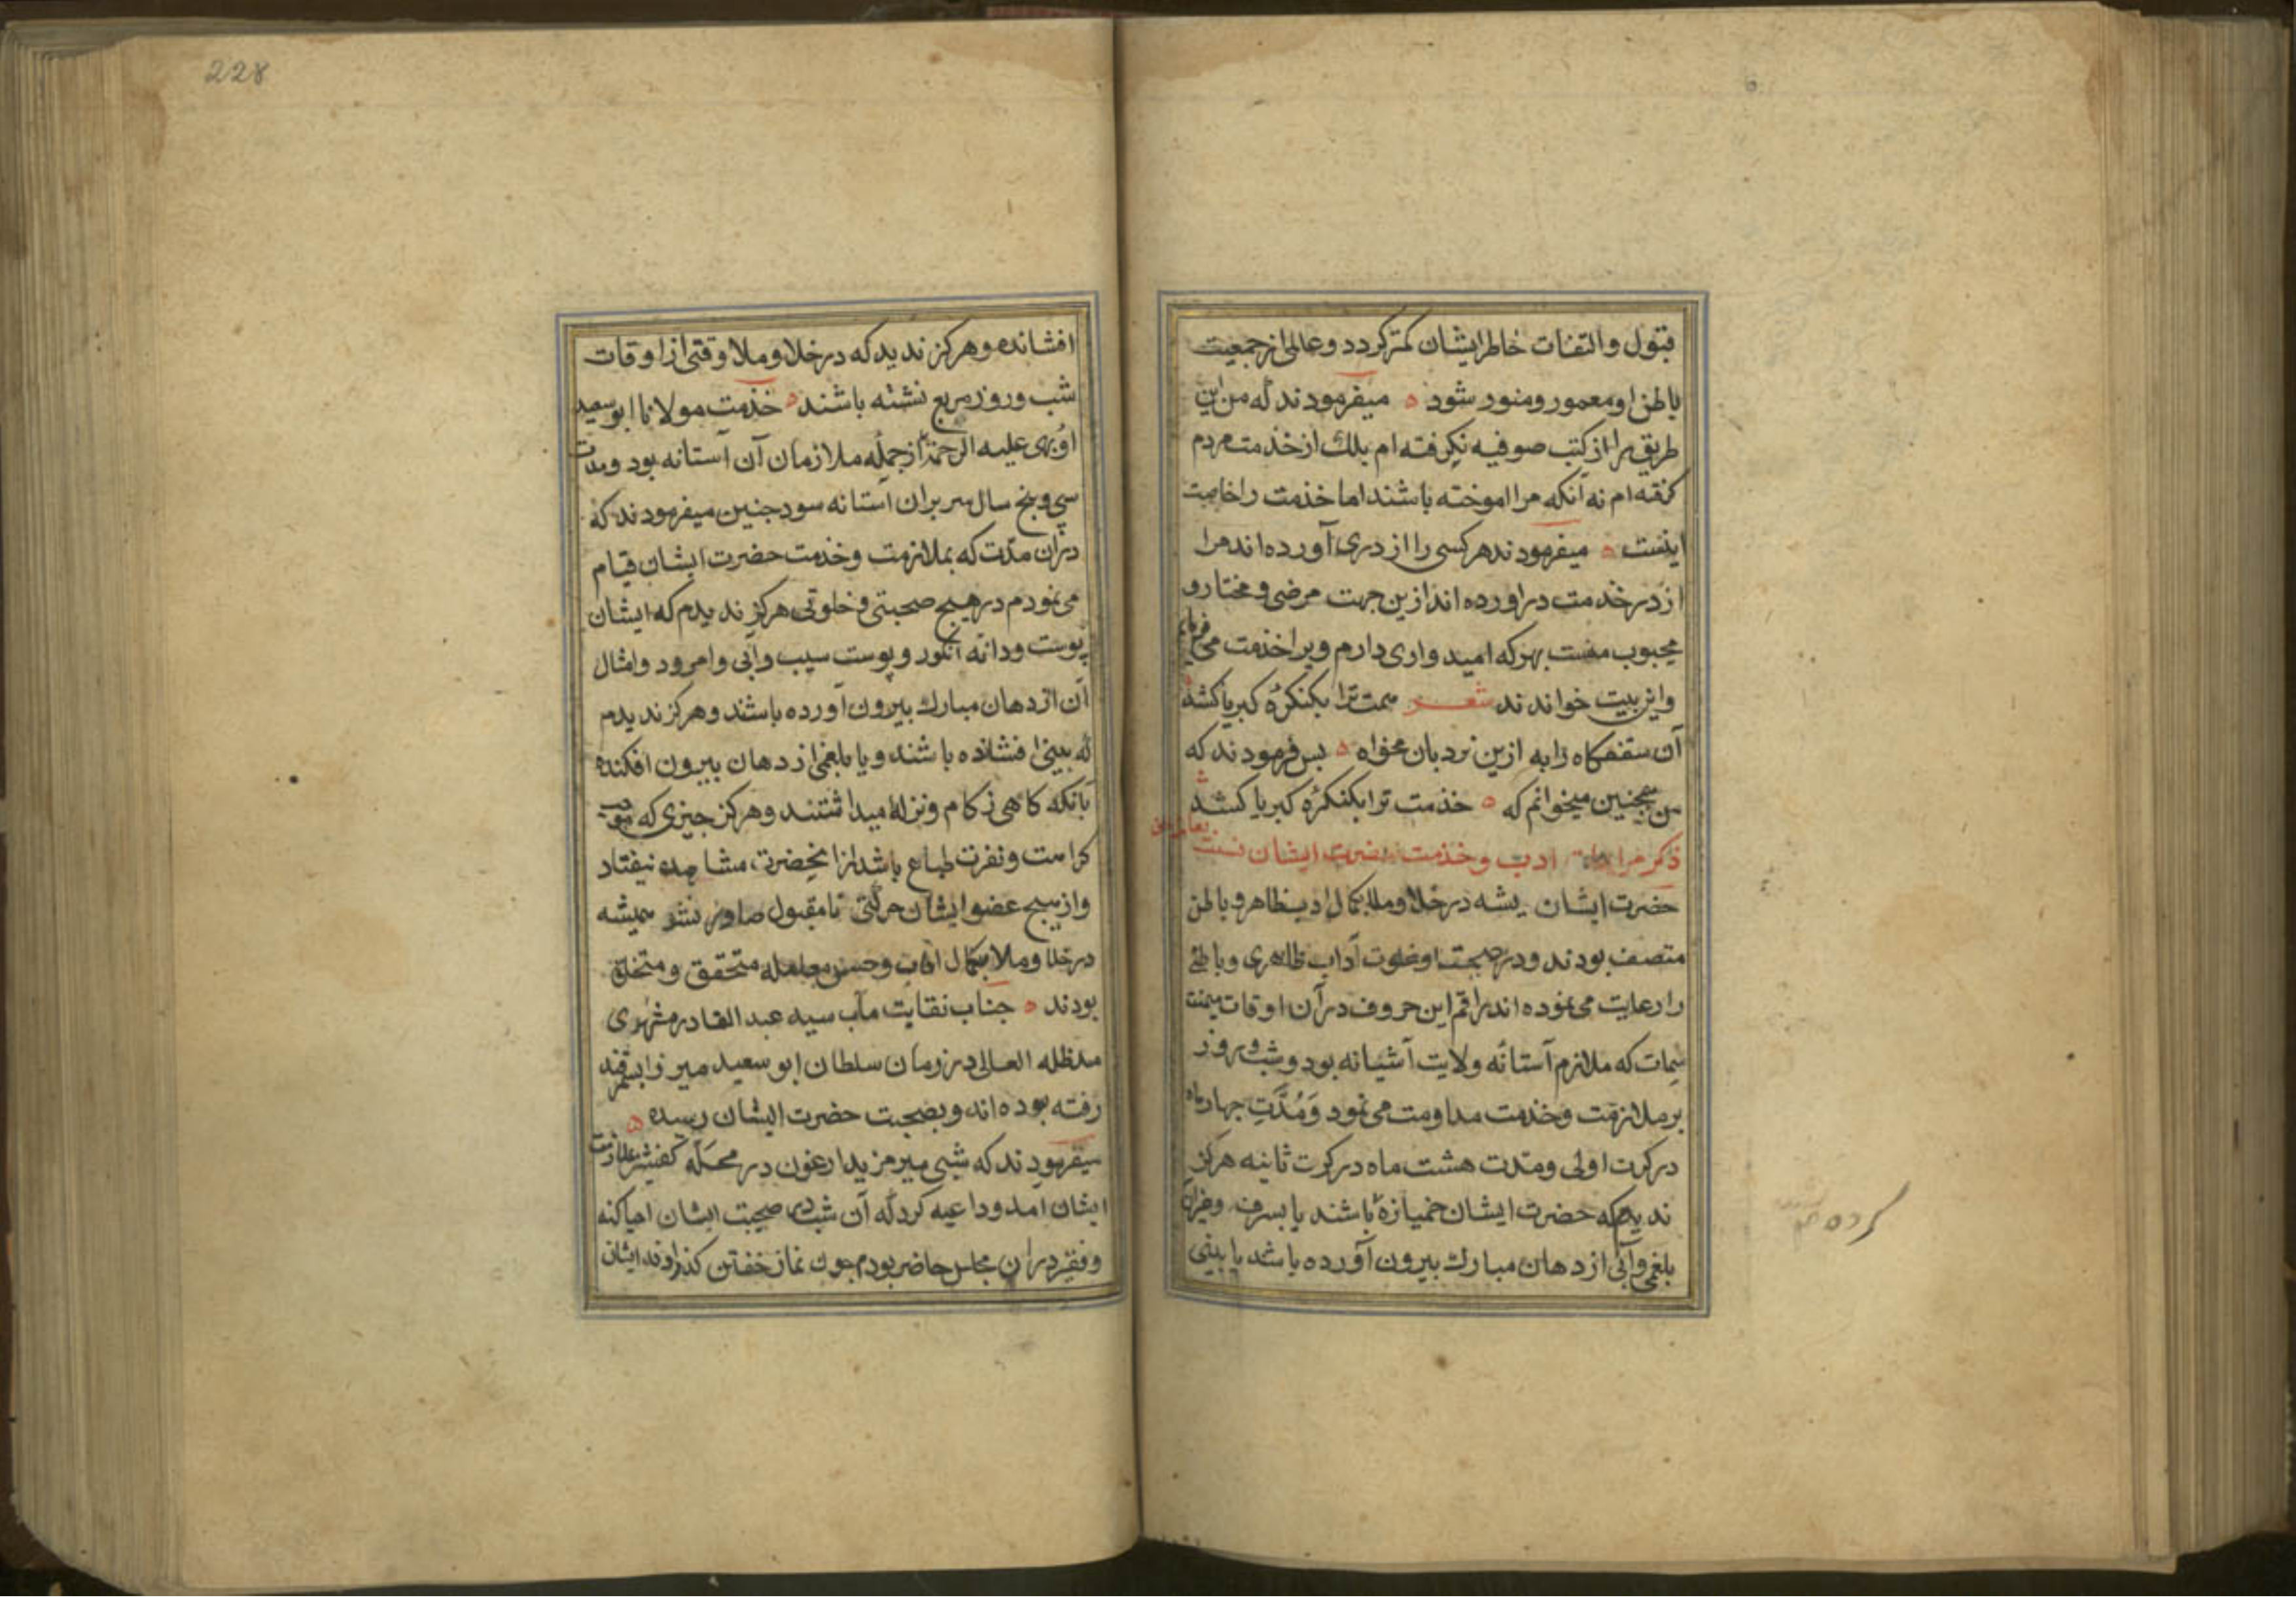 قبول والتفات خاطر ایشان کمتر کردد و عالمی از جمعیت
باطن او معمور و منور شود ه میفرمودند که من این
طریق را از کتب صوفیه نکرفته ام بلک از خذمت مردم
کرفته ام نه آنکه مرا اموخته باشند اما خذمت را خاصیت
اینست ه میفرمودند هر کسی را از دری آورده اند مرا
از در خدمت دراورده اند ازین جهت مرضی و مختار و
محبوب منست بهر که امیدواری دارم ویرا خذمت می فرمایم
واین بیت خواندند شعر همت ترا بکنکرهٔ کبریا کشد
آن سقفکاه را به ازین نردبان مخواه ه پس فرمودند که
من همچنین میخوانم که ه خذمت ترا بکنکرهٔ کبریا کشد
ذکر مراعات ادب و خذمت حضرت ایشان نسبت
حضرت ایشان همیشه در خلا و ملا بکمال ادب ظاهر و باطن
متصف بودند و در صحبت و خلوت آداب ظاهری و باطنی
را رعایت می نموده اند راقم این حروف در آن اوقات میمنت
سمات که ملازم آستانه ولایت آشیانه بود و شب و روز
بر ملازمت و خذمت مداومت می نمود وَمُدَّتِ چهار ماه
در کرت اولی و مدت هشت ماه در کرت ثانیه هرکز
ندید که حضرت ایشان خمیازه باشند یا بسرفه وغیران
بلغمی و آبی از دهان مبارک بیرون آورده باشد یا بینی
کرده
228
افشانده و هرکز ندید که در خلا و ملا وقتی از اوقات
شب و روز مربع نشسته باشند ه خذمت مولانا ابو سعید
اوبهی علیه الرحمة از جمله ملازمان آن آستانه بود و مدت
سی و پنج سال سر بر ان آستانه سود جنین میفرمودند که
دران مدّت که بملازمت و خذمت حضرت ایشان قیام
می نمودم در هیج صحبتی و خلوتی هرکز ندیدم که ایشان
پوست و دانه انکور و پوست سیب و آبی و امرود و امثال
آن از دهان مبارک بیرون آورده باشند و هرکز ندیدم
که بینی افشانده باشند و یا بلغمی از دهان بیرون افکنده
بآنکه کاهی زکام و نزله میداشتند و هرکز جیزی که موجب
کراهت و نفرت طباع باشد از انحضرت مشاهده نیفتاد
و از هیج عضو ایشان حرکتی نامقبول صادر نشد همیشه
در خلا و ملا بکمال اداب و حسن معامله متحقق و متخلق
بودند ه جناب نقابت مآب سید عبد القادر مشهدی
مدظله العالی در زمان سلطان ابو سعید میرزا بسمرقند
رفته بوده اند و بصحبت حضرت ایشان رسیده ه
میفرمودند که شبی میر مزید ارغون در محله کفشیر بملازمت
ایشان آمد و داعیه کرد که آن شب در صحبت ایشان احیا کند
و فقیر دران مجلس حاضر بودم جون نماز خفتن کذاردند ایشان